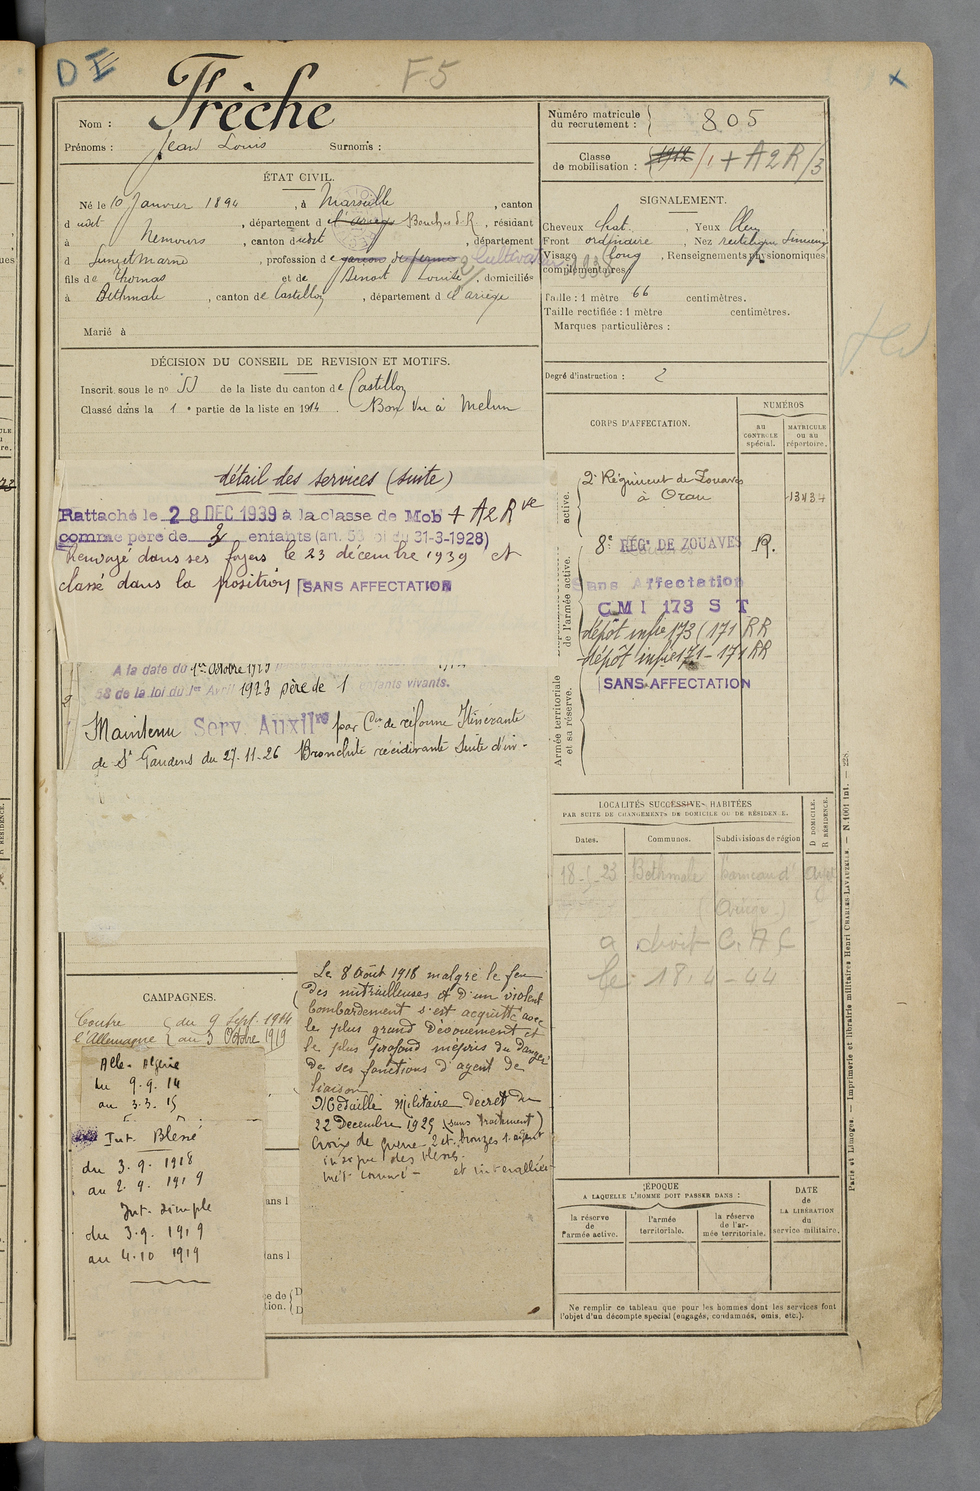 DE
F5
Nom : Frèche
Prénoms : Jean Louis Surnoms :
Numéro matricule du recrutement : 805
Classe de mobilisation : 1912 /1 + A2R/3
ÉTAT CIVIL.
Né le 10 Janvier 1894, à Marseille, canton
dudit, département d l'Ariège Bouches d. R., résidant
à Nemours, canton dudit, département
d Seine et Marne, profession de garçon de ferme Cultivateur
fils de Thomas et de Benoit Louise, domiciliés
à Bethmale, canton de Castillon, département d l'ariège
Marié à
SIGNALEMENT.
Cheveux chat. Yeux bleu
Front ordinaire, Nez rectiligne
Visage long, Renseignements physionomiques
complémentaires
Taille : 1 mètre 66 centimètres.
Taille rectifiée : 1 mètre centimètres.
Marques particulières :
Degré d'instruction : 2
DÉCISION DU CONSEIL DE REVISION ET MOTIFS.
Inscrit sous le nº 53 de la liste du canton de Castillon
Classé dans la 1e partie de la liste en 1914. Bon Vu à Melun
détail des services (suite)
Rattaché le 28 DEC 1939 à la classe de Mob + A2R ve
comme père de 3 enfants (art. 58 loi du 31-3-1928)
Renvoyé dans ses foyers le 23 décembre 1939 et
classé dans la position SANS AFFECTATION
A la date du 1er Octobre 1923
58 de la loi du 1er Avril 1923 père de 1 enfants vivants.
Maintenu Serv. Auxilre par Con de réforme Itinérante
de St Gaudens du 27-11-26 Bronchite récidivante Suite d'in-
CORPS D'AFFECTATION.
NUMÉROS
AU CONTROLE spécial.
MATRICULE OU AU répertoire.
active.
2e Régiment de Zouaves
à Oran
13434
de l'armée active.
8e RÉGt DE ZOUAVES 19.
Sans Affectation
CMI 173 ST
dépôt infie 173 (171 RR
dépôt infie 171 - 171 RR
SANS AFFECTATION
Armée territoriale et sa réserve.
LOCALITÉS SUCCESSIVES HABITÉES
PAR SUITE DE CHANGEMENTS DE DOMICILE OU DE RÉSIDENCE.
Dates. Communes. Subdivisions de région
D DOMICILE. R RÉSIDENCE.
18-5-23 Bethmale
(Ariège)
a droit C.A.C
le 18-4-44
CAMPAGNES.
Contre l'Allemagne { du 9 Sept. 1914
au 3 Octobre 1919
Alle. Algérie
du 9.9.14
au 3.3.15
Int. Blessé
du 3.9.1918
au 2.9.1919
Int. simple
du 3.9.1919
au 4.10 1919
Le 8 Août 1918 malgré le feu
des mitrailleuses et d'un violent
bombardement s'est acquitté avec
le plus grand dévouement et
le plus profond mépris du danger
de ses fonctions d'agent de
liaison
Médaille Militaire décret du
22 Decembre 1925 (sans traitement)
Croix de guerre 2 et. bronzes 1 argent
insigne des blessés.
et interalliée
ÉPOQUE
A LAQUELLE L'HOMME DOIT PASSER DANS :
la réserve de l'armée active.
l'armée territoriale.
la réserve de l'armée territoriale.
DATE de LA LIBÉRATION du service militaire.
Ne remplir ce tableau que pour les hommes dont les services font
l'objet d'un décompte spécial (engagés, condamnés, omis, etc.).
Paris et Limoges. — Imprimerie et librairie militaires Henri CHARLES-LAVAUZELLE. — N. 1001 int. — 228.